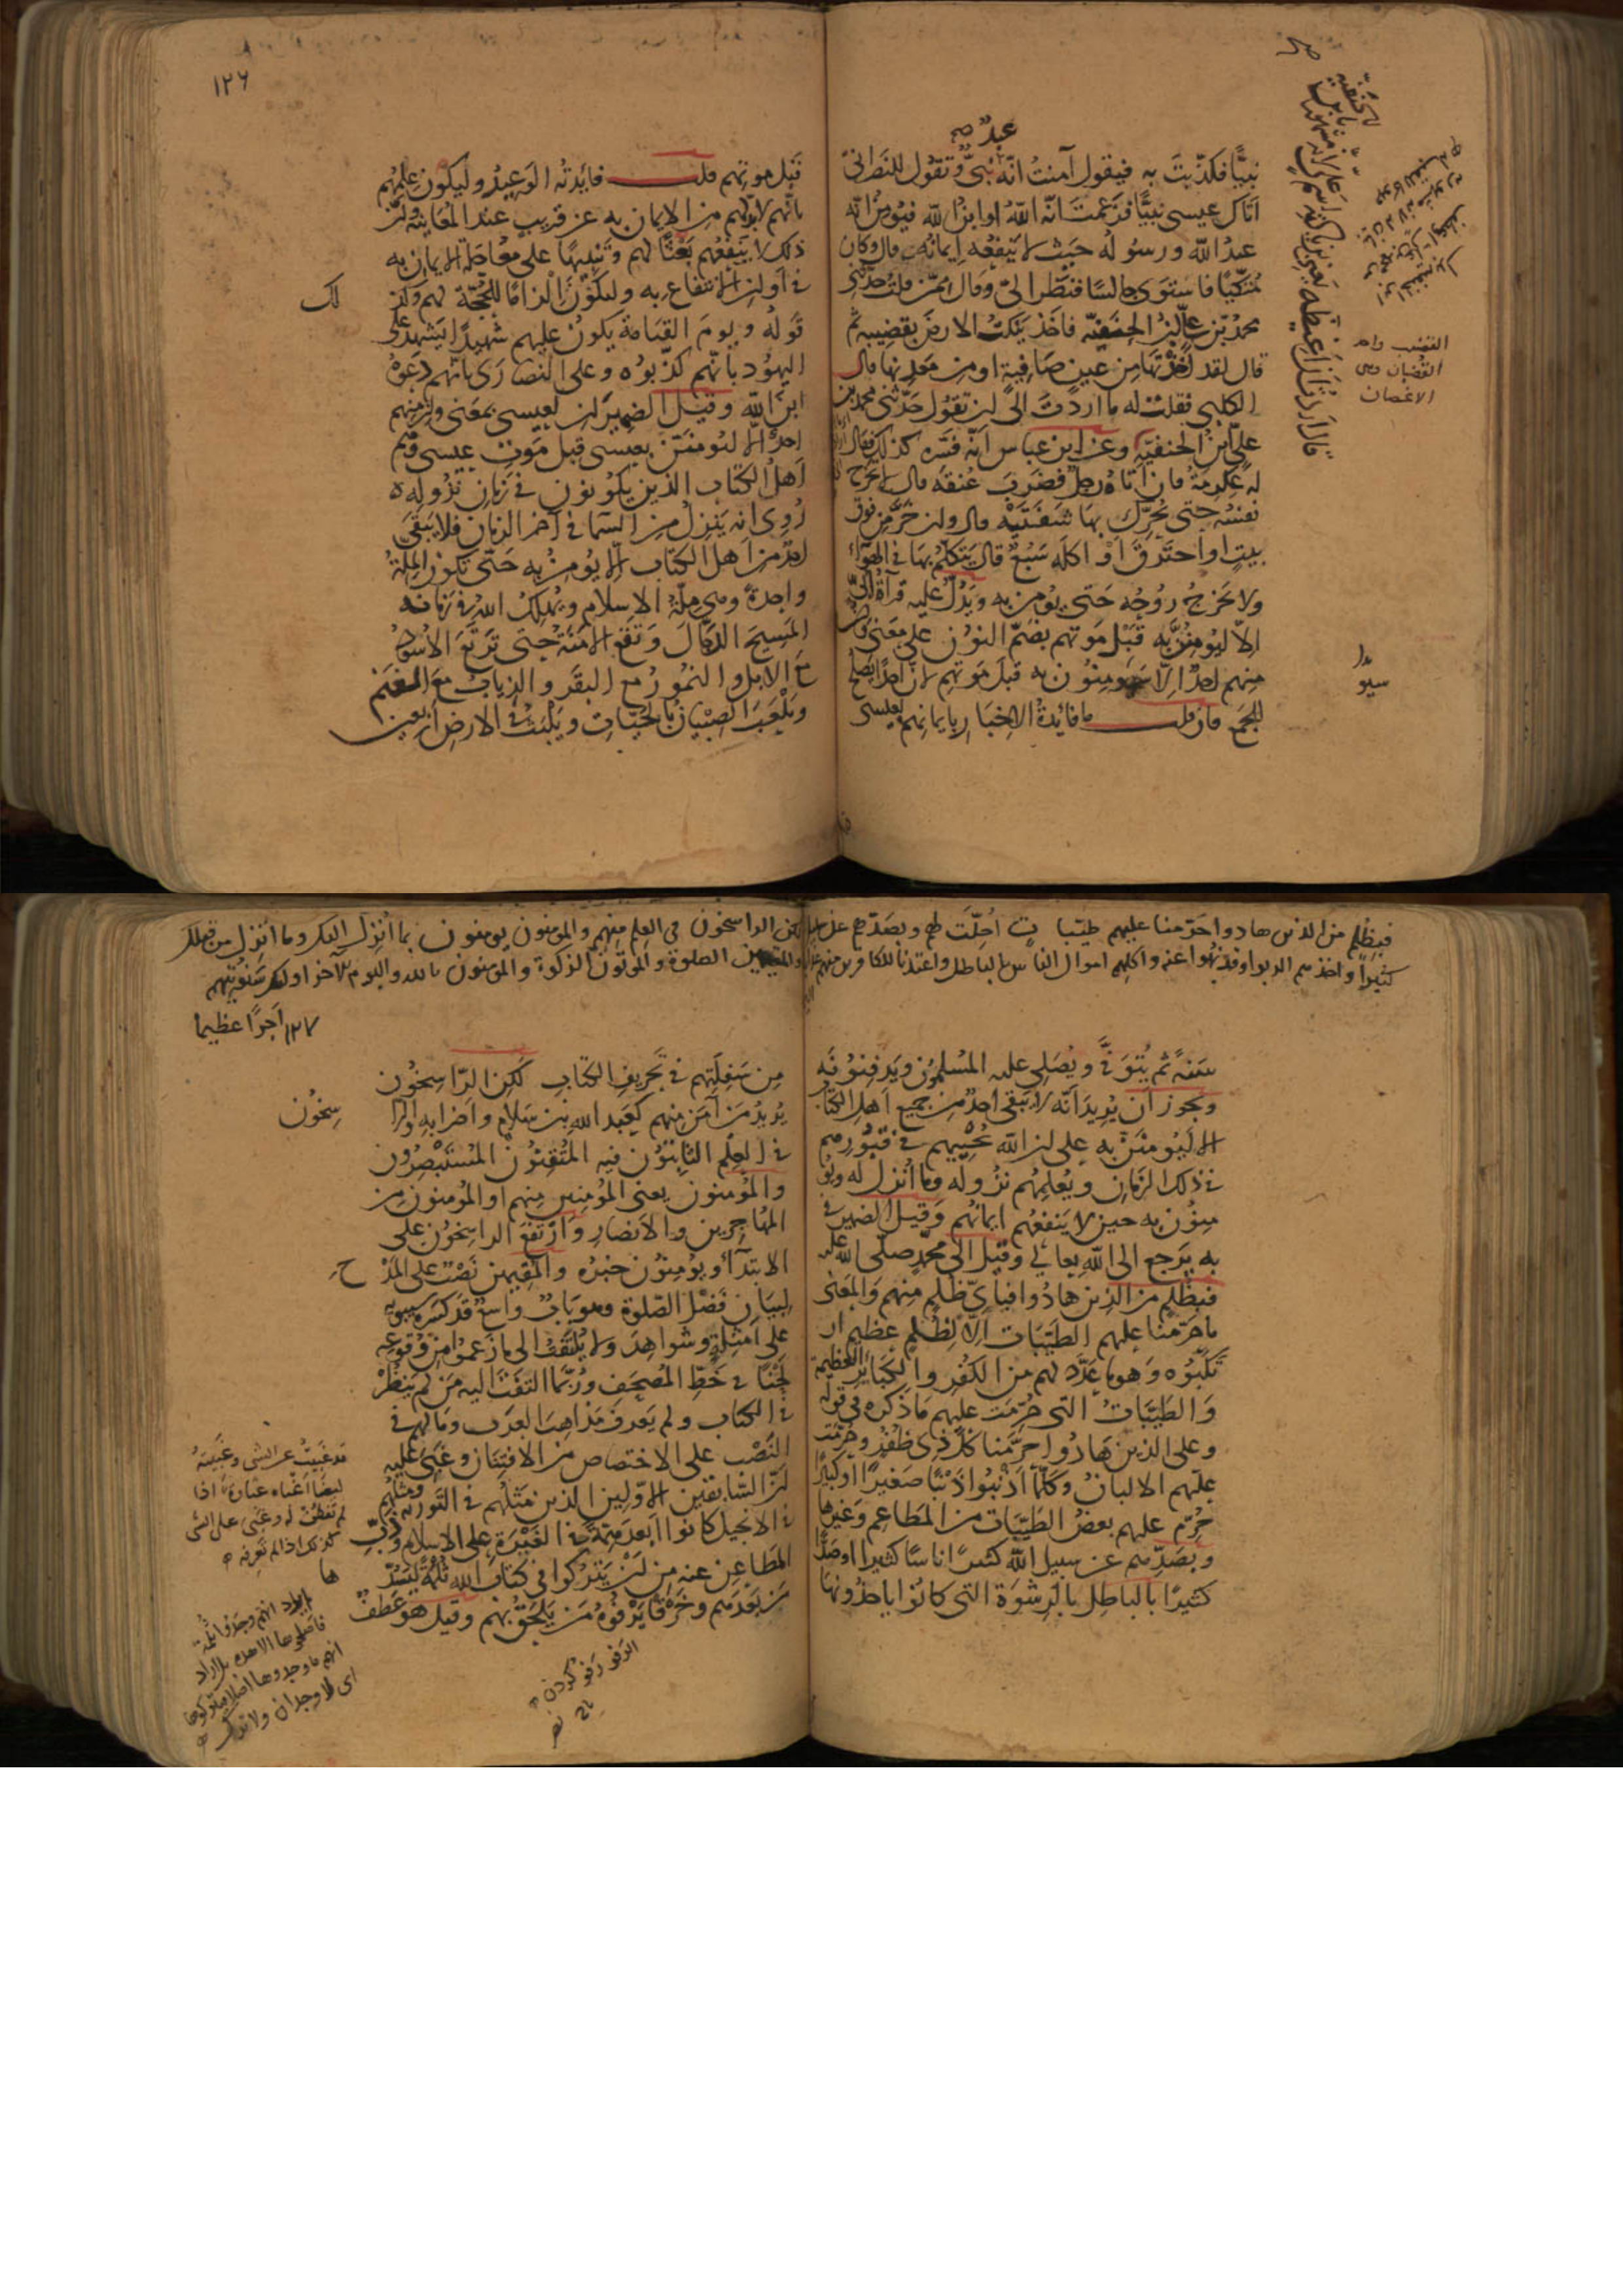 عبد
نبيًّا فكذّبتَ به فيقول آمنتُ انّه نبىّ وتقول للنصرانىّ
اتاك عيسى نبيًّا فزعمتَ انّه اللّهُ او ابنُ اللّه فيؤمن انّه
عبدُ اللّه ورسوله حيث لا ينفعه إيمانُه قال وكان
متّكيًا فاستوى جالسًا فنظر الىّ وقال ممّن قلتُ حدّثنى
محمّدُ بن علىّ ابنُ الحنفيّة فاخذ ينكتُ الارضَ بقضيبه ثم
قال لقد اخذتَها من عينٍ صافيةٍ او من معدنها قال
الكلبى فقلتُ له ما اردتَ الىّ ان تقول حدّثنى محمد بن
علىّ ابنُ الحنفية وعن ابن عباس انّه فسّره كذلك فقال
له عكرمةُ فان اتاه رجلٌ فضرب عنقَه قال لا تخرج
نفسُه حتى يحرّك بها شفتَيْه قال وان خرّ من فوق
بيتٍ او احترقَ اَوْ اكله سبُعٌ قال يتكلّمُ بها فى الهوآء
ولا تخرج روحُه حتى يؤمن به ويدلّ عليه قرآةُ اُبىّ
الاّ ليؤمنُنّ به قبْل موتهم بضمّ النون على معنى وان
منهم احدٌ الاّ سيؤمنون به قبل موتهم لانّ احدًا يصلحُ
للجمع فان قلت ما فائدةُ الاخبار بايمانهم بعيسى
القضيب واحد
القضبان وهى
الاغصان
١٢٦
قبل موتهم قلت فائدتُه الوعيدُ وليكون علمهم
بانّهم لا بدّ لهم من الايمان به عن قريب عند المعاينة وانّ
ذلك لا ينفعُهم بعثًا لهم وتنبيهًا على معاجلة الايمان به
فى اوان الانتفاع به وليكون الزامًا للحجّة لهم وكذ
لك
قولُه ويومَ القيامة يكونُ عليهم شهيدًا يشهد على
اليهود بانّهم كذّبوه وعلى النصارَى بانّهم دعَوْهُ
ابنَ اللّه وقيل الضميرانِ لعيسى بمعنى وان منهم
احدٌ الّا ليؤمننّ بعيسى قبل موت عيسى وهم
اهلُ الكتاب الذين يكونون فى زمان نزوله
رُوى انه ينزلُ من السّما فى آخر الزمان فلا يبقى
احدٌ من اهل الكتاب الّا يؤمن به حتّى تكون الملّةُ
واحدةً وهى ملّةُ الاسلام ويُهلكُ اللّهُ فى زمانه
المسيحَ الدجّالَ وتقع الامَنَةُ حتى ترتَعَ الاُسودُ
مع الابل والنمورُ مع البقر والذيابُ مع الغنم
ويلعبَ الصبيانُ بالحيّات ويلبث فى الارض اربعين
فبظلم من الذين هادوا حرّمنا عليهم طيّبات اُحلّت لهم وبصدّهم عن سبيل
كثيراً واخذهم الربوا وقد نهوا عنه واكلهم اموال الناس بالباطل واعتدنا للكافرين منهم
سَنةً ثم يُتوفَّى ويُصلّى عليه المسلمون ويدفنونَه
ويجوز ان يُريدَ انّه لا يبقى احدٌ من جميع اهل الكتاب
الّا ليؤمننّ به على ان اللّه يُحييهم فى قبورهم
فى ذلك الزمان ويُعلمُهم نزُولَه وما اُنزل له ويؤ
منون به حين لا ينفعُهم ايمانُهم وقيل الضمير فى
به يرجع الى اللّه تعالى وقيل الى محمّد صلّى اللّه عليه
فبظلمٍ من الذين هادُوا فبأىّ ظُلمٍ منهم والمعنى
ما حرّمنا عليهم الطيّبات اِلّا لظلمٍ عظيمٍ ار
تكبُوه وهو ما عدّد لهم من الكفر والكبائر العظيمة
والطيّباتُ التى حُرّمت عليهم ما ذكره فى قوله
وعلى الذين هادُوا حرّمنا كلّ ذى ظُفُرٍ وحُرّمت
عليهم الالبانُ وكلّما اذنبُوا ذنبًا صغيرًا او كبيرًا
حُرّم عليهم بعضُ الطيّبات من المطاعم وغيرها
وبصدّهم عن سبيل اللّه كثيرًا اناسًا كثيرا او صدًّا
كثيرًا بالباطِل بالرشوة التى كانوا ياخذونها
لكن الراسخون فى العلم منهم والمؤمنون يومنون بما اُنزل اليك وما اُنزل من قبلك
والمقيمين الصلوة والموتون الزكوة والمومنون بالله واليوم الآخر اولئك سنؤتيهم
اجرًا عظيما
١٢٧
من سَفِلَتهم فى تحريف الكتاب لكن الرّاسخون
يُريدُ من آمن منهم كعبد اللّه بن سلام واضرابه والرا
سِخُون
فى العلم الثابتون فيه المُتقنون المُستبصرون
والمؤمنون يعنى المؤمنين منهم او المؤمنون من
المهاجرين والانصار وارتفع الراسخون على
الابتدآ ويؤمنون خبرُه والمقيمين نصْبٌ على المَدْ
ح
لبيان فضل الصّلوة وهو بابٌ واسعٌ قد كسره سيبويه
على امثلةٍ وشواهدَ ولا يُلتفتُ الى ما زعموا من وقوعه
لحْنًا فى خطّ المصحف وربّما التفتَ اليه من لم ينظُرْ
فى الكتاب ولم يعرف مذاهبَ العرب وما لهم فى
النصْب على الاختصاص من الافتنان وغَبِىَ عليه
انّ السّابقين الاوّلين الذين مثَلُهم فى التورية ومثلهم
فى الانجيل كانوا ابعدَ همّةً فى الغيْرة على الاسلام وذبّ
المطاعن عنه من ان يتركوا فى كتاب اللّه ثُلْمةً ليسُدّ
ها
مَن بعدَهم وخرْقًا يرفُوهُ مَن يلحقُ بهم وقيل هو عطفٌ
قد غبيتُ عن الشى وغبيتهُ
ايضًا اغباه غباوةً اذا
لم تفطنْ له وغبى على الشى
كذلك اذا لم تعرفه
الرفو رفو كردن